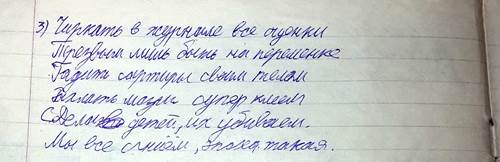 3) Чиркать в журнале все оценки
Трезвым лишь быть на переменке
Гадить сортиры своим телом
супер клеем
детей, их убиваем.
Мы все сгнием, эпоха такая.